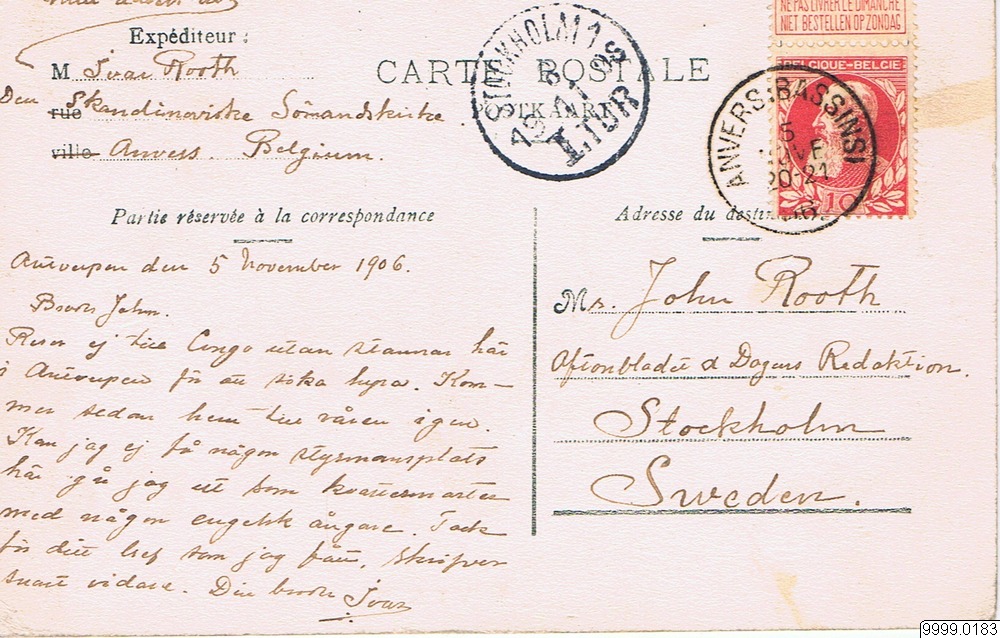 NE PAS LIVRER LE DIMANCHE
NIET BESTELLEN OP ZONDAG
Expéditeur:
M Ivar Rooth
Den
rue Skandinaviske Sömandskirke
ville Anvers. Belgium.
CARTE POSTALE
STOCKHOLM 1
1 TUR
BELGIQUE-BELGIE
ANVERS-BASSINS
5
20-21
10
Partie réservée à la correspondance
Antverpen den 5 November 1906.
Broder John.
Reser ej till Congo utan stannar här
i Antverpen för att söka hyra. Kom-
mer sedan hem till våren igen.
Kan jag ej få någon styrmansplats
här går jag ut som kvartermaster
med någon engelsk ångare. Tack
för ditt bref som jag fått, skrifver
snart vidare. Din broder Ivar
Adresse du
Mr. John Rooth
Aftonbladet & Dagens Redaktion.
Stockholm
Sweden.
9999.0183